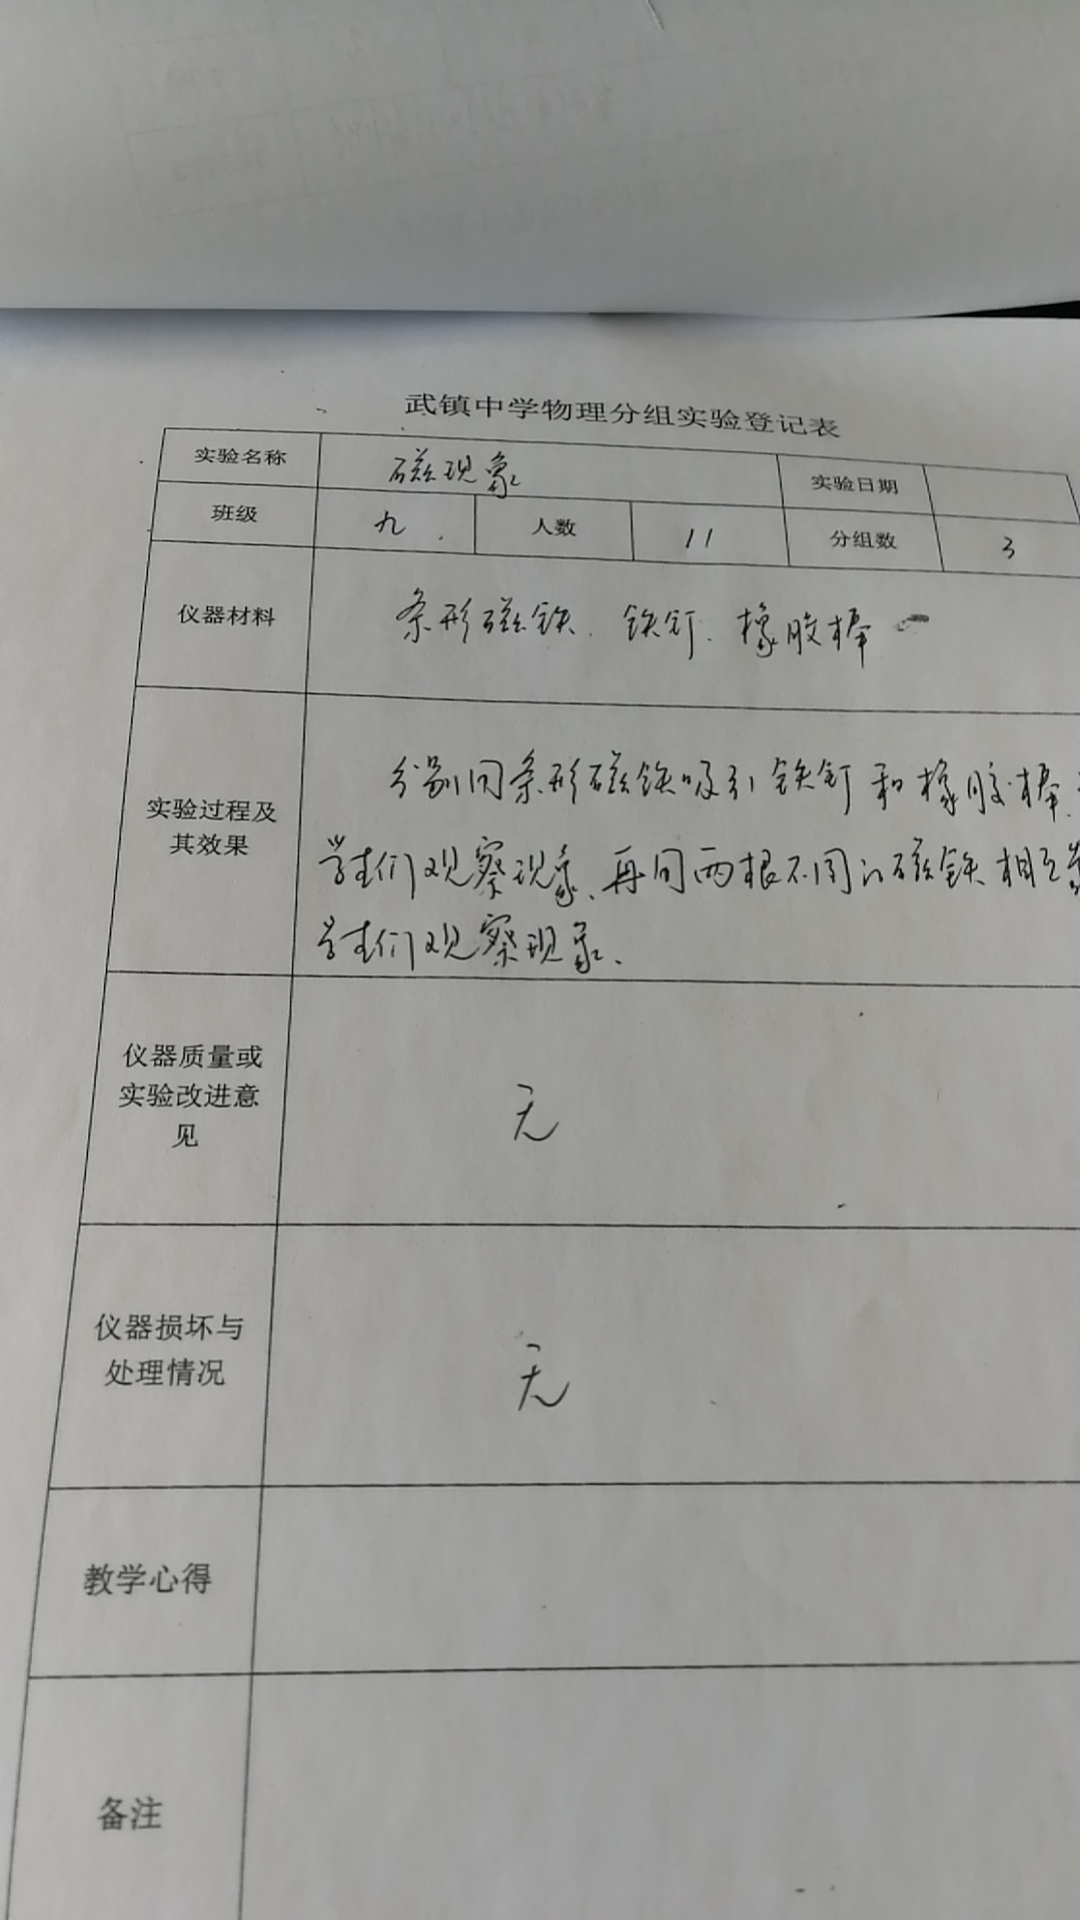 武镇中学物理分组实验登记表
实验名称 磁现象 实验日期
班级 九 人数 11 分组数 3
仪器材料 条形磁铁、铁钉、橡胶棒
实验过程及其效果
分别用条形磁铁吸引铁钉和橡胶棒、
学生们观察现象、再用两根不同的磁铁相互
学生们观察现象、
仪器质量或
实验改进意
见
无
仪器损坏与
处理情况
无
教学心得
备注